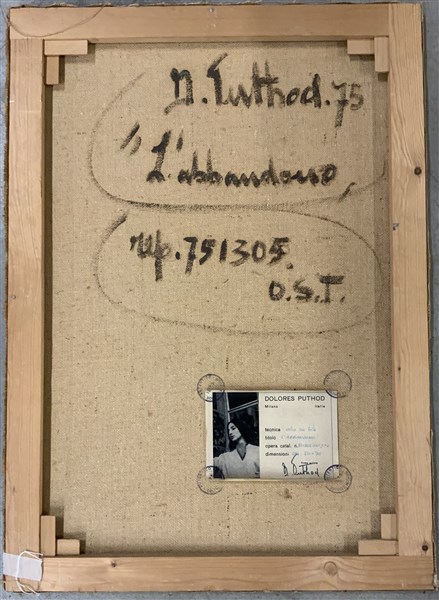 D. Puthod. 75
"L'abbandono"
rep. 751305.
O.S.T.
DOLORES PUTHOD
Milano
tecnica olio su tela
titolo
opera catal. n.
dimensioni
D. Puthod